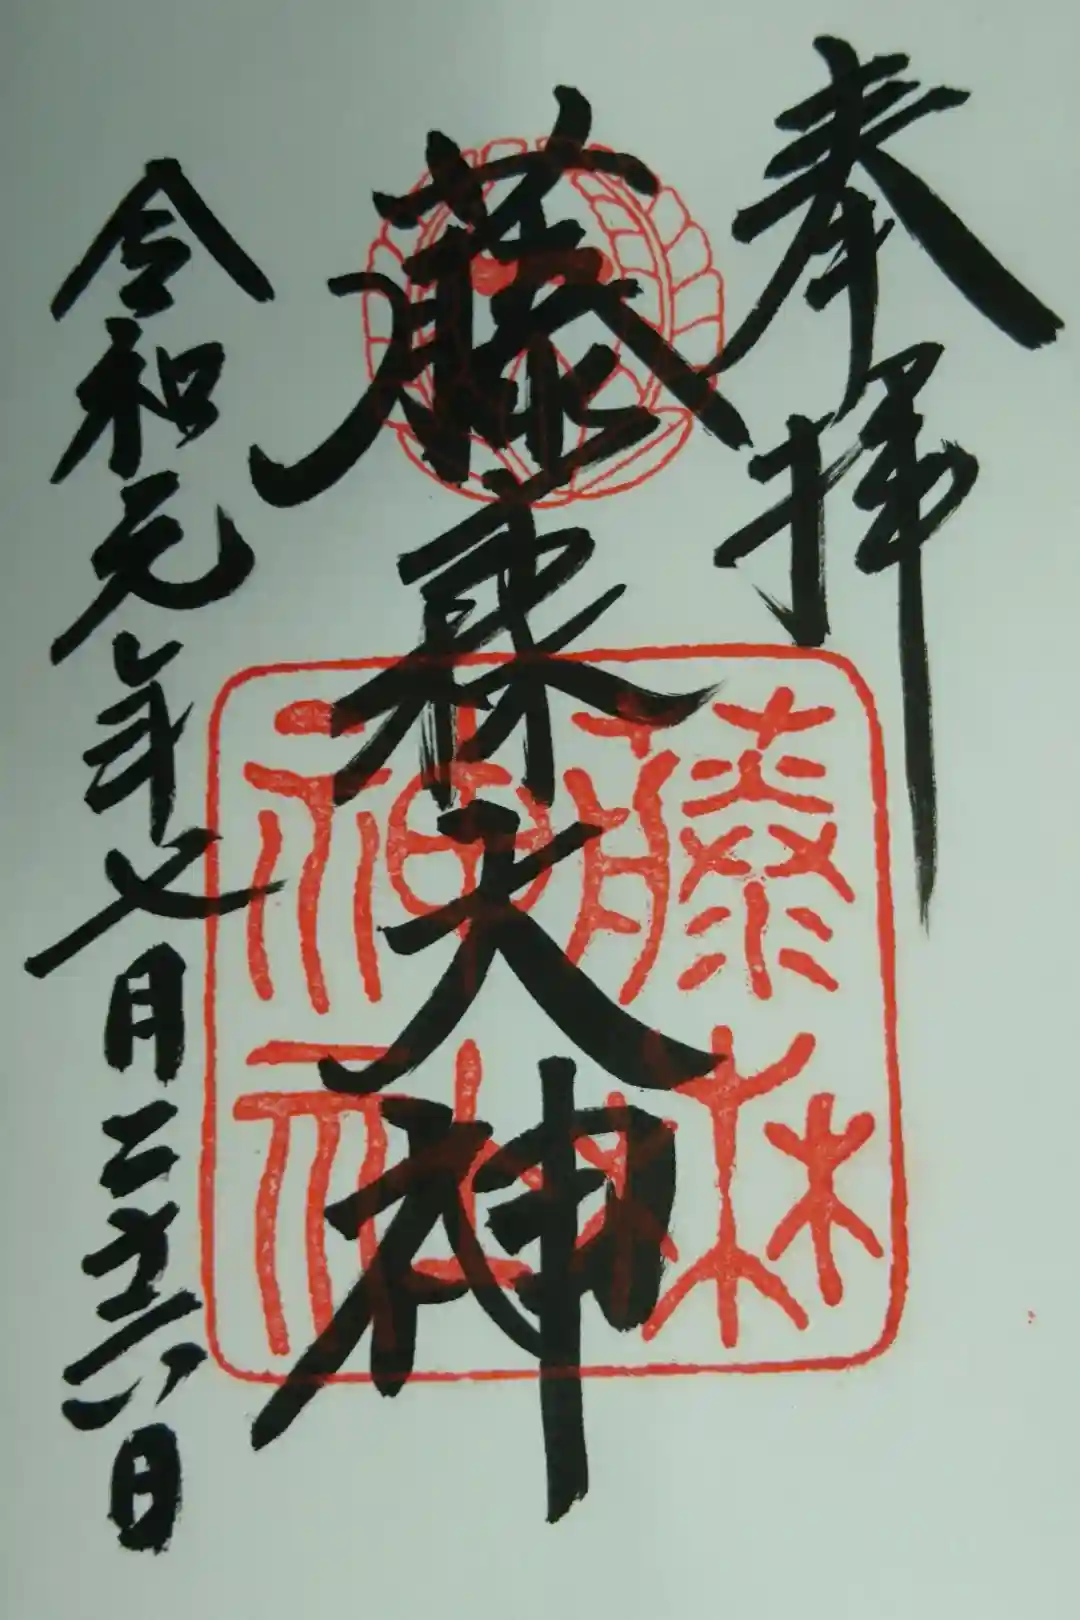 奉拝
藤森大神
令和元年七月二十六日
藤森
神社